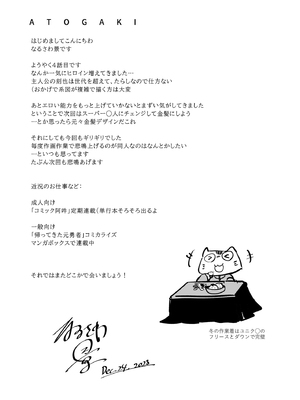 ATOGAKI
はじめましてこんにちわ
なるさわ景です
ようやく4話目です
なんか一気にヒロイン増えてきました…
主人公の別也は世代を超えて、たらしなので仕方ない
(おかげで系図が複雑で描く方は大変
あとエロい能力をもっと上げていかないとまずい気がしてきました
ということで次回はスーパー◯人にチェンジして金髪にしよう
…とか思ったら元々金髪デザインだこれ
それにしても今回もギリギリでした
毎度作画作業で悲鳴上げるのが同人なのはなんとかしたい
…といつも思ってます
たぶん次回も悲鳴あげます
近況のお仕事など:
成人向け
「コミック阿吽」定期連載(単行本そろそろ出るよ
一般向け
「帰ってきた元勇者」コミカライズ
マンガボックスで連載中
それではまたどこかで会いましょう!
冬の作業着はユニク◯の
フリースとダウンで完璧
なるさわ
景
Dec.24.2023